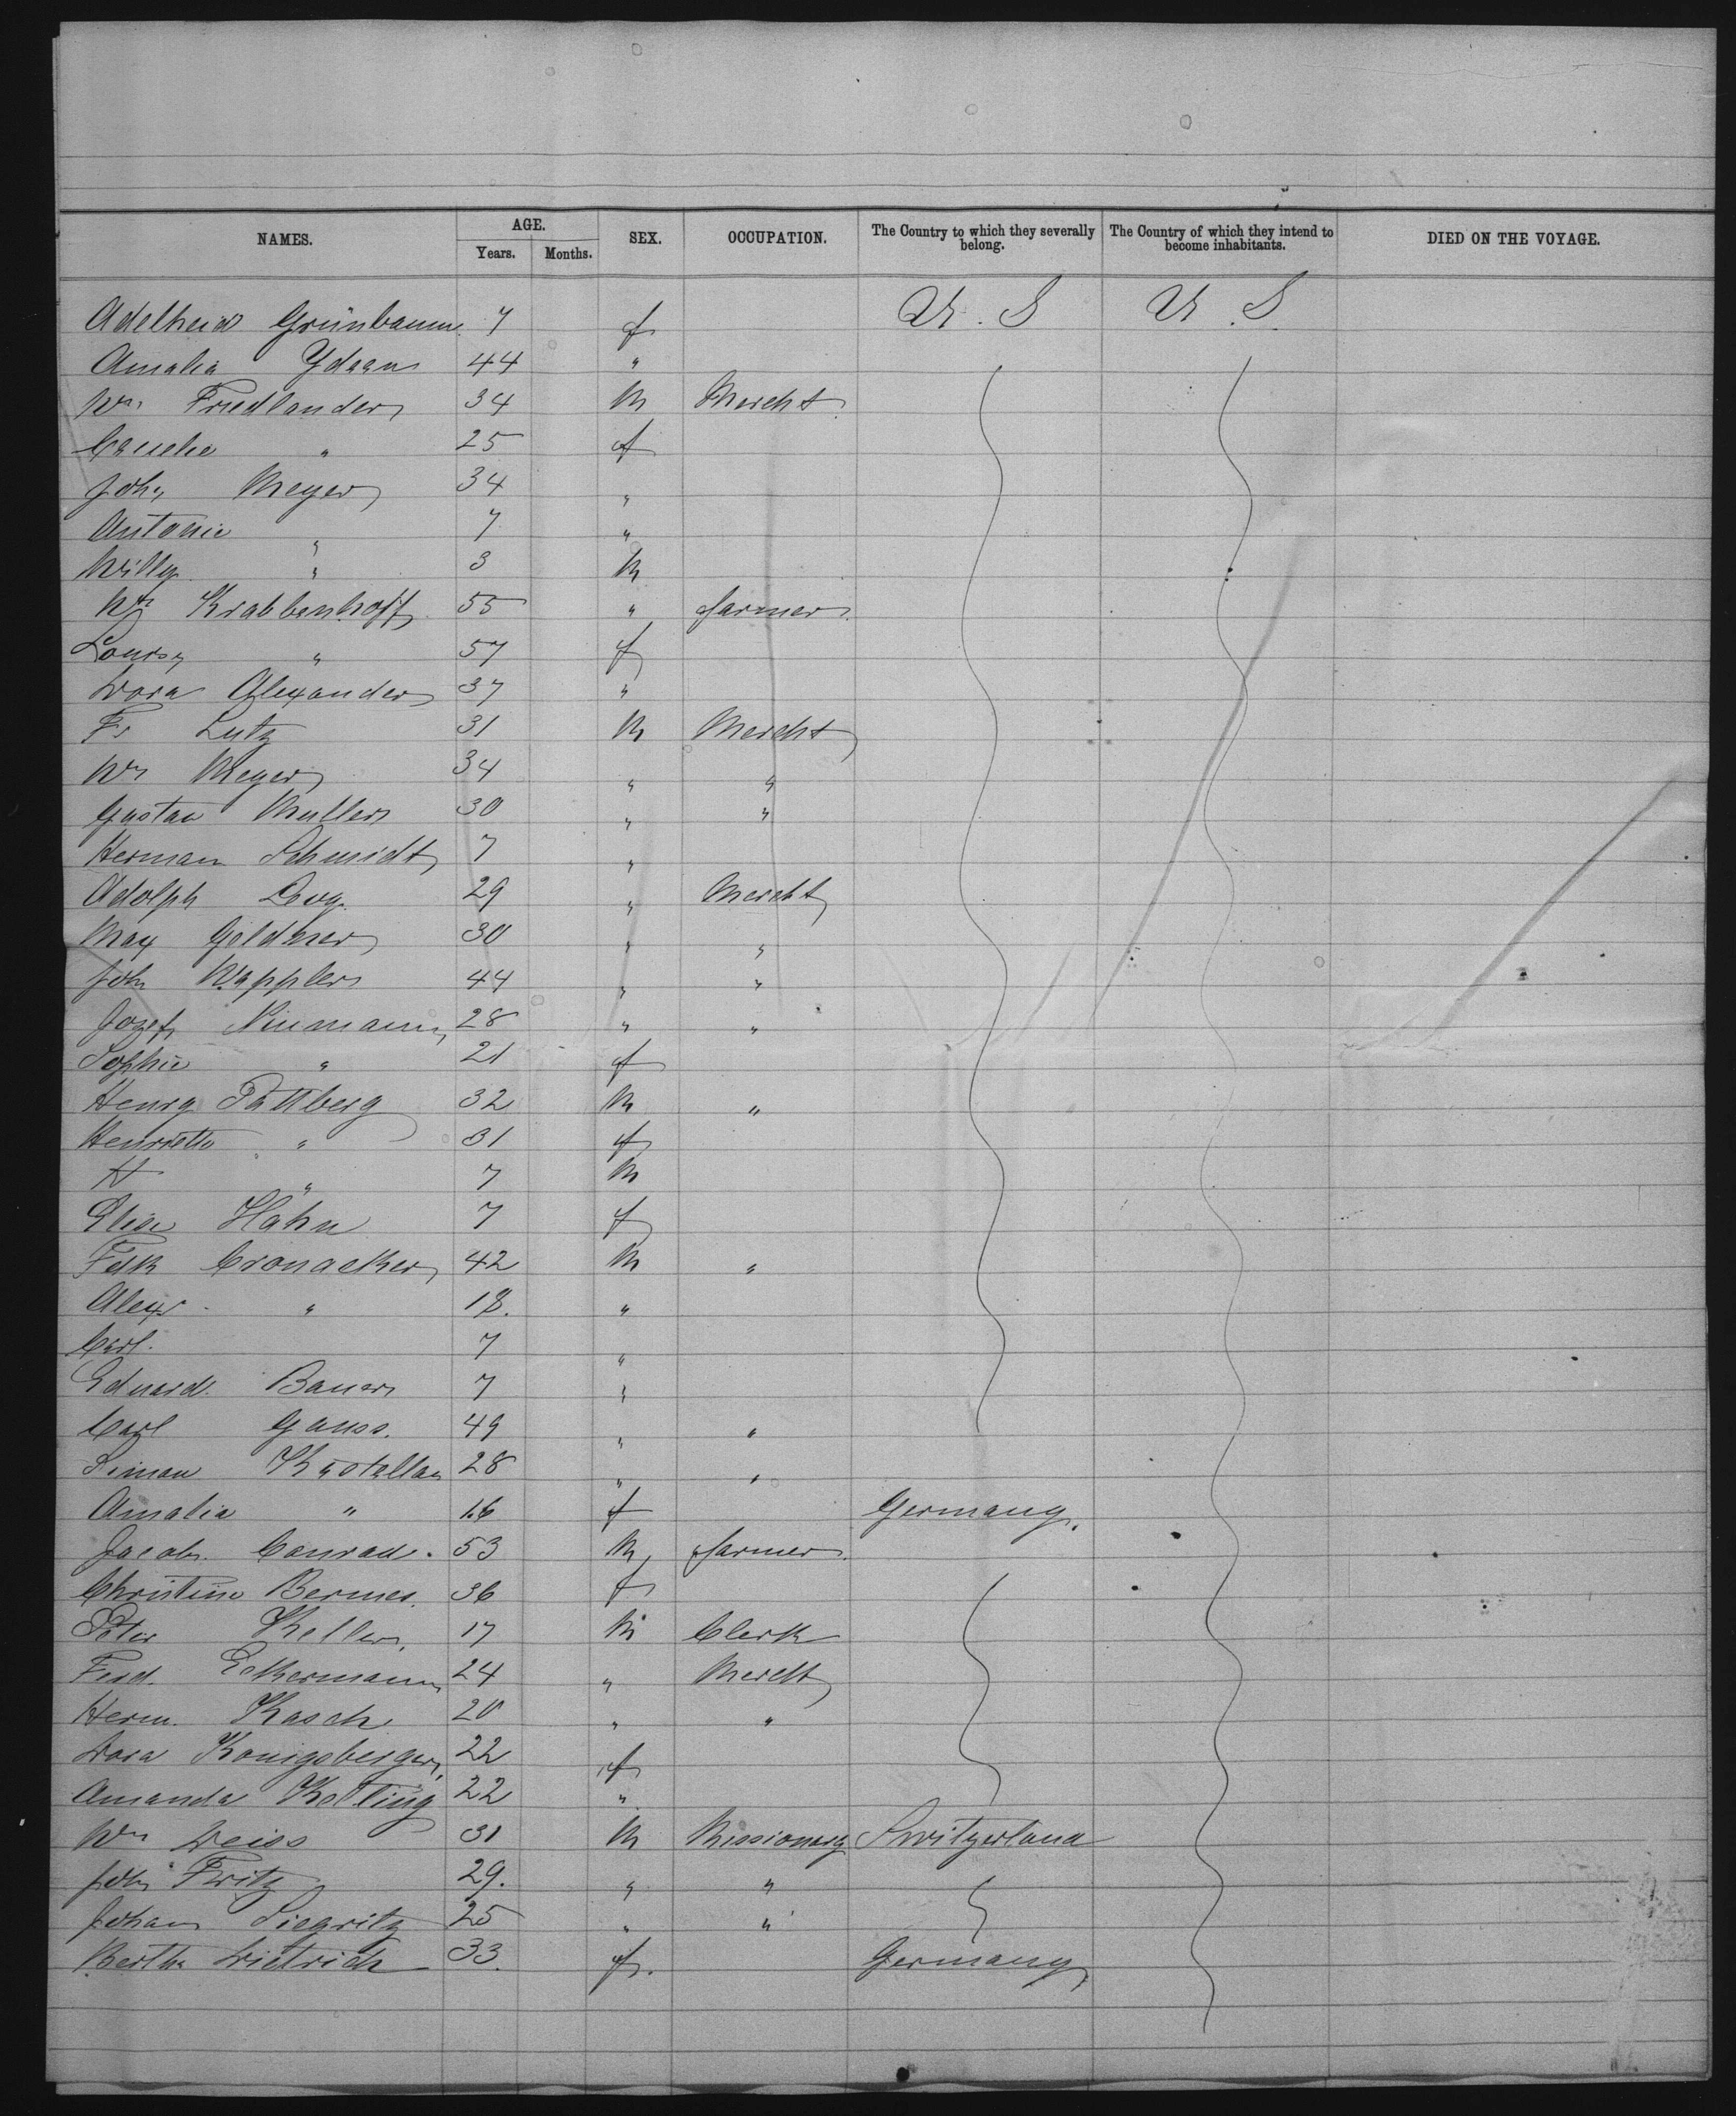 NAMES. AGE. SEX. OCCUPATION. The Country to which they severally belong. The Country of which they intend to become inhabitants. DIED ON THE VOYAGE.
Years. Months.
Adelheid Grünbaum 7 f U. S U. S
Amalia 44 "
Wm Friedlander 34 M Mercht
" 25 f
Joh. Meyer 34 "
Antonie " 7 "
Willy " 3 M
Wm Krabbenhoff 55 " farmer
" 57 f
Dora Alexander 37 "
Fr Lutz 31 M Mercht
Wm Meyer 34 " "
Gustav Muller 30 " "
Herman Schmidt 7 "
Adolph Levy 29 " Mercht
Max Goldmer 30 " "
Joh Wappler 44 " "
Josef Niumann 28 " "
Sophie " 21 f
Henry Pattberg 32 M "
Henriette " 31 f
H " 7 M
Elise Hahn 7 f
Fdk Cronacker 42 M "
Alex " 18. "
Carl. 7 "
Eduard. Bauer 7 "
Carl Gauss. 49 " "
Simon Kastellan 28 " "
Amalia " 16 f Germany.
Jacob. Conrad. 53 M farmer.
Christine Bermer. 36 f
Peter Keller. 17 M Clerk
Ferd. Eckermann 24 " Mercht
Herm. Kasch 20 " "
Dora Konigsberger, 22 f
Amanda Kelling 22 "
Wm Weiss 31 M Missionary Switzerland
Joh Fritz 29. " "
Johann Siegritz 25 " "
Bertha Dietrich 33. f. Germany